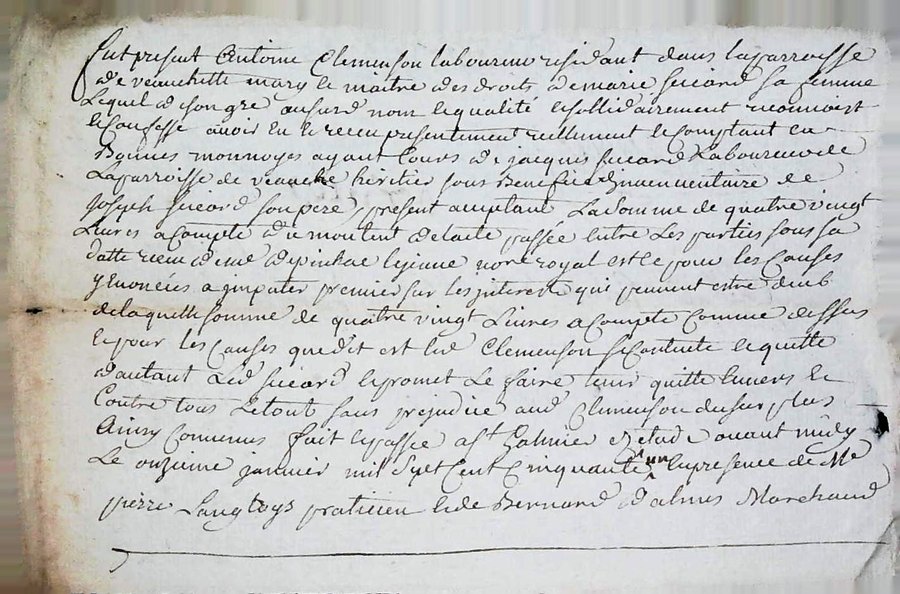 fut présent Antoine Clemenson laboureur residant dans la parroisse
de veauchette mary et maitre des droits de marie siccard sa femme
Lequel de son gré au susd nom et qualité et sollidairement reconnoist
et confesse avoir eu et receu presentement reellement et comptant en
Bonnes monnoyes ayant Cours de jacquis siccard Laboureur de
La parroisse de veauche héritier sous Benefice d'inventaire de
Joseph siccard son pere, présent acceptant La Somme de quatre vingt
Livres a compte du montent de lacte passée Entre Les parties sous sa
datte receu de me depinhac le jeune nore royal et ce pour les Causes
y enoncées a jmputer premier sur les jnterets qui peuvent estre deub
de laquelle somme de quatre vingt Livres a Compte Comme dessus
et pour les Causes que dit est led Clemenson se contente et quitte
d'autant Led siccard et promet Le faire tenir quitte Envers et
Contre tous Le tout sans prejudice aud Clemenson du surplus
Ainsy Convenus fait et passé a St Galmier Etude avant midy
Le onzieme janvier mil Sept Cent Cinquante un En presence de Me
pierre Langloys praticien et de Bernard dalmes Marchand